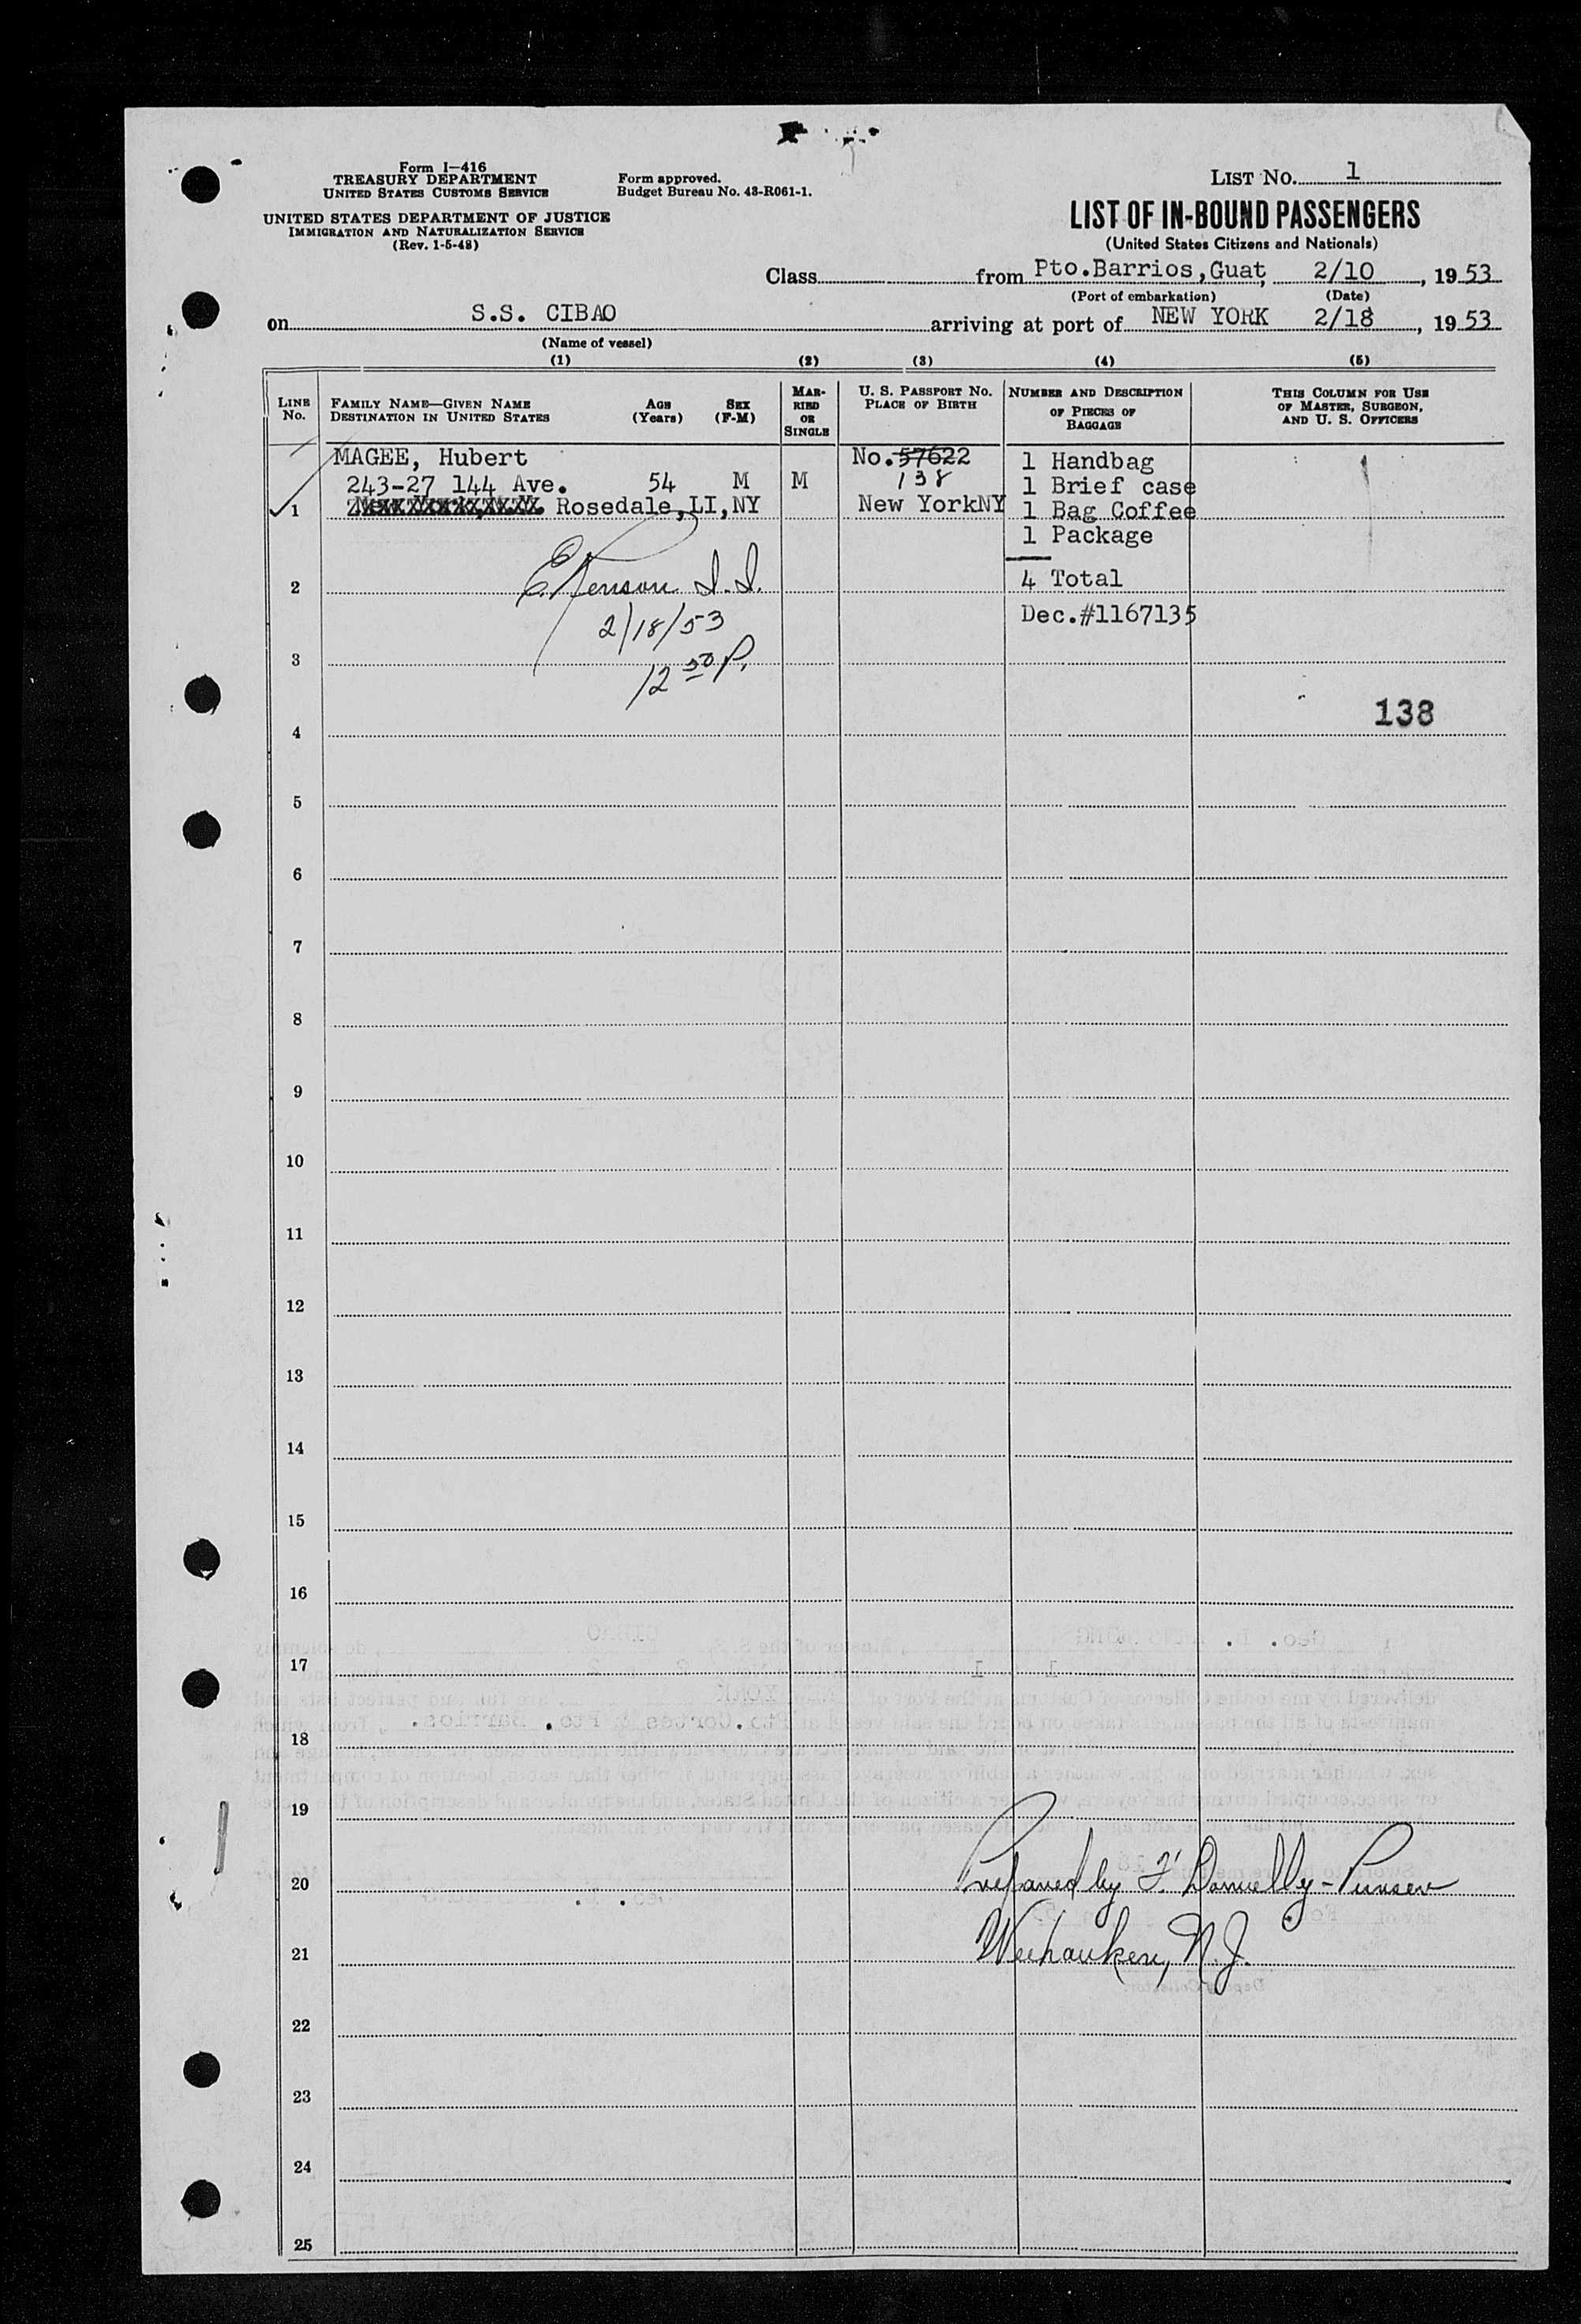 Form I-416
TREASURY DEPARTMENT
UNITED STATES CUSTOMS SERVICE
UNITED STATES DEPARTMENT OF JUSTICE
IMMIGRATION AND NATURALIZATION SERVICE
(Rev. 1-5-48)
Form approved.
Budget Bureau No. 43-R061-1.
LIST NO. 1
LIST OF IN-BOUND PASSENGERS
(United States Citizens and Nationals)
Class from Pto.Barrios,Guat, 2/10, 1953
(Port of embarkation) (Date)
on S.S. CIBAO arriving at port of NEW YORK 2/18, 1953
(Name of vessel)
(1) (2) (3) (4) (5)
LINE No.
FAMILY NAME—GIVEN NAME
DESTINATION IN UNITED STATES
AGE (Years)
SEX (F-M)
MARRIED OR SINGLE
U. S. PASSPORT NO.
PLACE OF BIRTH
NUMBER AND DESCRIPTION OF PIECES OF BAGGAGE
THIS COLUMN FOR USE OF MASTER, SURGEON, AND U. S. OFFICERS
MAGEE, Hubert No. 57622 1 Handbag
243-27 144 Ave. 54 M M 138 1 Brief case
1 Rosedale,LI,NY New YorkNY 1 Bag Coffee
1 Package
2 4 Total
2/18/53 Dec.#1167135
3
138
4
5
6
7
8
9
10
11
12
13
14
15
16
17
18
19
20 Prepared by F. Donnelly - Purser
21 Weehauken, N.J.
22
23
24
25